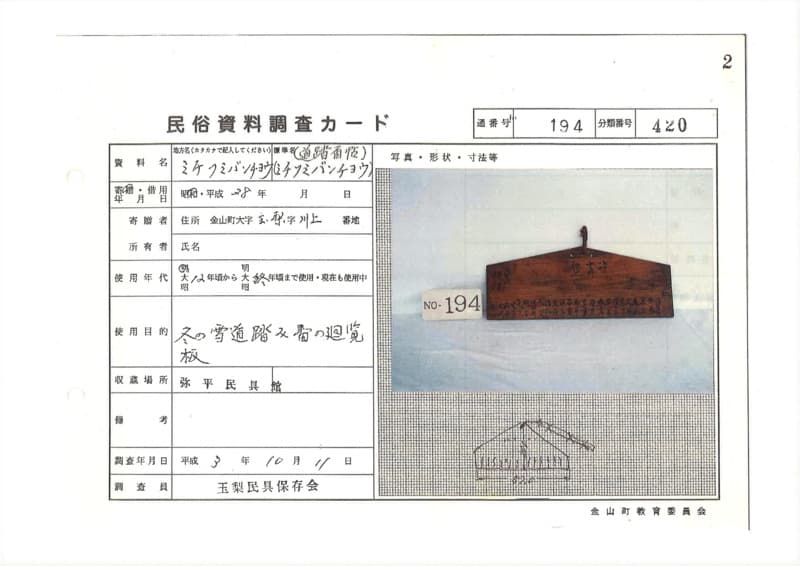 2
民俗資料調査カード
通番号 194 分類番号 420
資料名
地方名(カタカナで記入してください)
ミチフミバンチョウ
標準名(道踏番帳)
(ミチフミバンチョウ)
写真・形状・寸法等
寄贈・借用年月日
昭和・平成 28年 月 日
寄贈者
住所 金山町大字玉梨字川上 番地
所有者
氏名
使用年代
明大昭 12年頃から 明大昭 終年頃まで使用・現在も使用中
使用目的
冬の雪道踏み番の廻覧
板
収蔵場所
弥平民具館
備考
調査年月日
平成 3 年 10 月 11 日
調査員
玉梨民具保存会
NO-194
金山町教育委員会